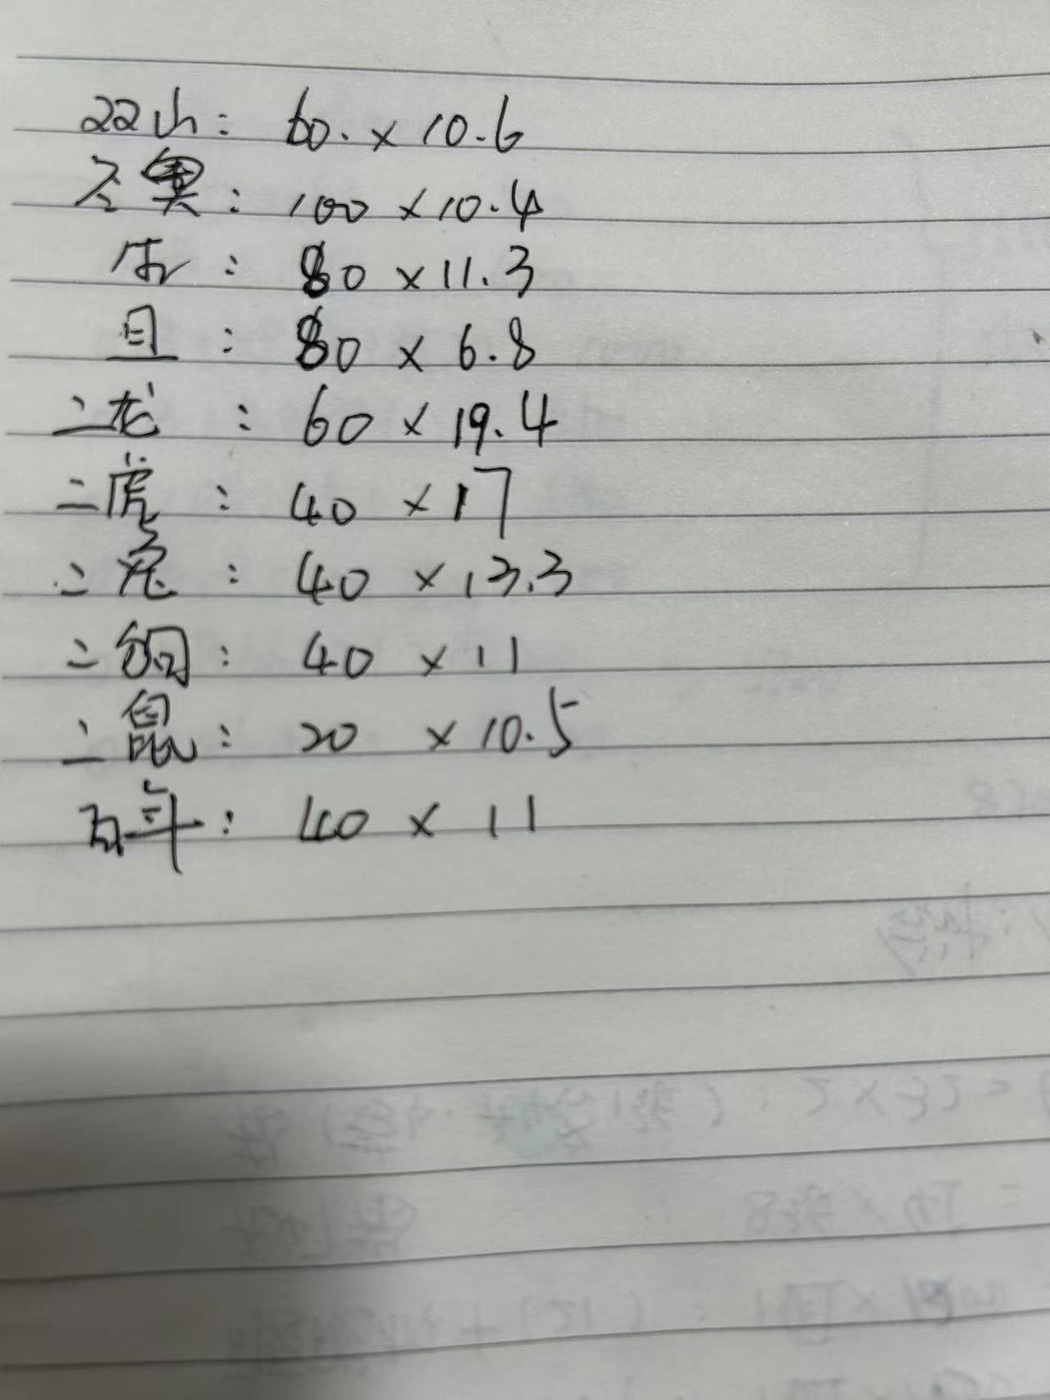 双山: 60.×10.6
冬奥: 100×10.4
: 80×11.3
: 80×6.8
二龙: 60×19.4
二虎: 40×17
二兔: 40×13.3
二铜: 40×11
二鼠: 20×10.5
: 40×11